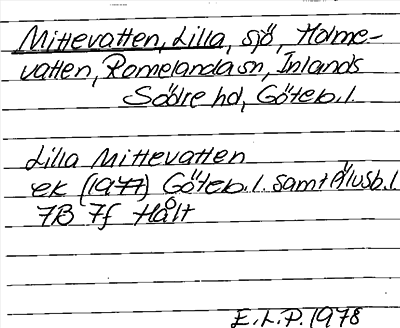 Mittevatten, Lilla, sjö, Holme-
vatten, Romelanda sn, Inlands
Södre hd, Göteb. l.
Lilla Mittevatten
ek (1977) Göteb. l. samt Älvsb. l
7B 7f Hålt
E.L.P. 1978